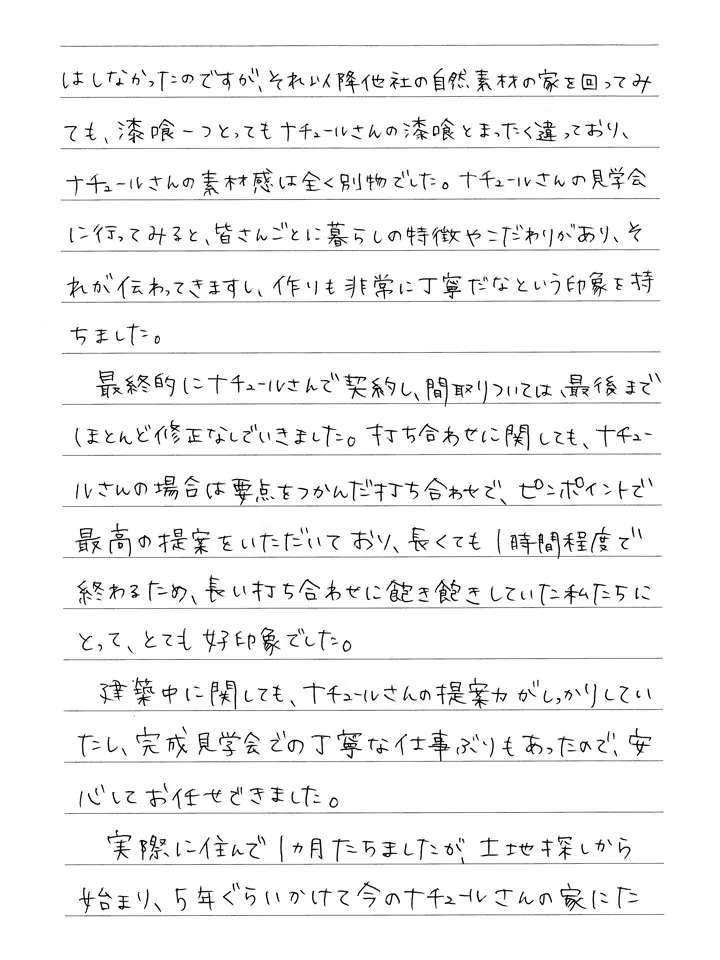 はしなかったのですが、それ以降他社の自然素材の家を回ってみ
ても、漆喰一つとってもナチュールさんの漆喰とまったく違っており、
ナチュールさんの素材感は全く別物でした。ナチュールさんの見学会
に行ってみると、皆さんごとに暮らしの特徴やこだわりがあり、そ
れが伝わってきますし、作りも非常に丁寧だなという印象を持
ちました。
最終的にナチュールさんで契約し、間取りついては、最後まで
ほとんど修正なしでいきました。打ち合わせに関しても、ナチュー
ルさんの場合は要点をつかんだ打ち合わせで、ピンポイントで
最高の提案をいただいており、長くても1時間程度で
終わるため、長い打ち合わせに飽き飽きしていた私たちに
とって、とても好印象でした。
建築中に関しても、ナチュールさんの提案力がしっかりしてい
たし、完成見学会での丁寧な仕事ぶりもあったので、安
心してお任せできました。
実際に住んで1ヵ月たちましたが、土地探しから
始まり、5年ぐらいかけて今のナチュールさんの家にた